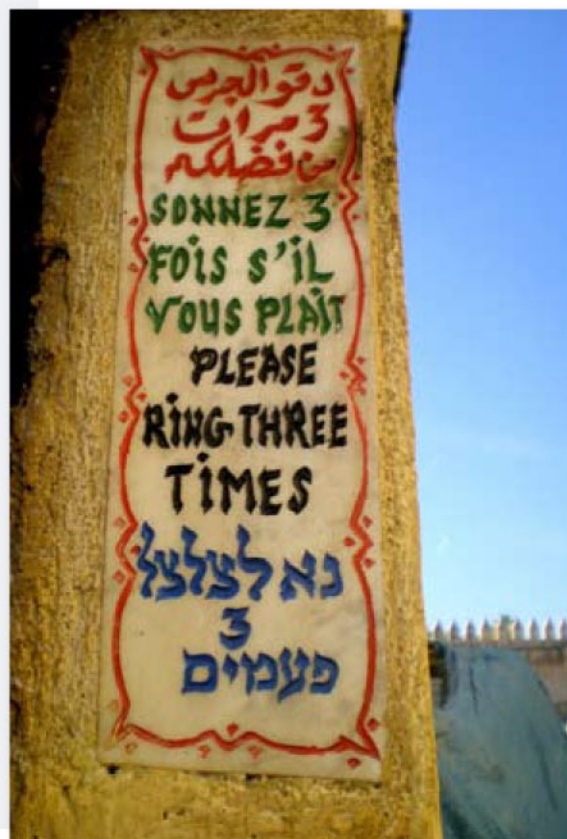 دقوا الجرس
3 مرات
من فضلكم
SONNEZ 3
FOIS S'IL
VOUS PLAÎT
PLEASE
RING THREE
TIMES
נא לצלצל
3
פעמים